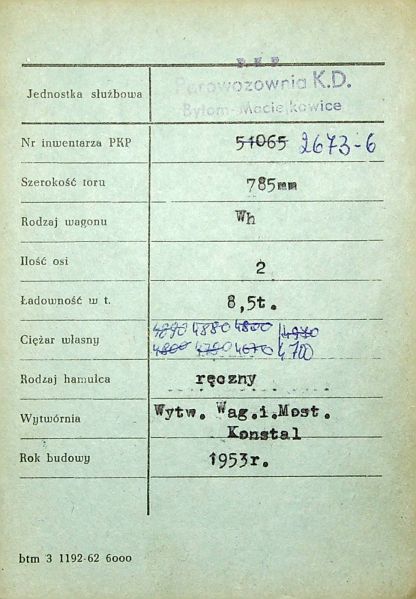 P.K.P.
Jednostka służbowa Parowozownia K.D.
Bytom-Maciejkowice
Nr inwentarza PKP 51065 2673-6
Szerokość toru 785mm
Rodzaj wagonu Wh
Ilość osi 2
Ładowność w t. 8,5t.
4890 4880 4800 4930
Ciężar własny 4800 4750 4670 4700
Rodzaj hamulca ręczny
Wytwórnia Wytw. Wag.i.Most.
Konstal
Rok budowy 1953r.
btm 3 1192-62 6000